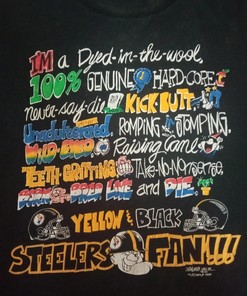 I'M a Dyed-in-the-wool,
100% GENUINE HARD-CORE
never-say-die KICK BUTT
Unadulterated ROMPING & STOMPING,
WILD-EYED Raising Cane
TEETH GRITTING TAKE-NO-NONSENSE,
BORN and BRED LIVE and DIE FOR
YELLOW & BLACK
STEELERS FAN!!!!